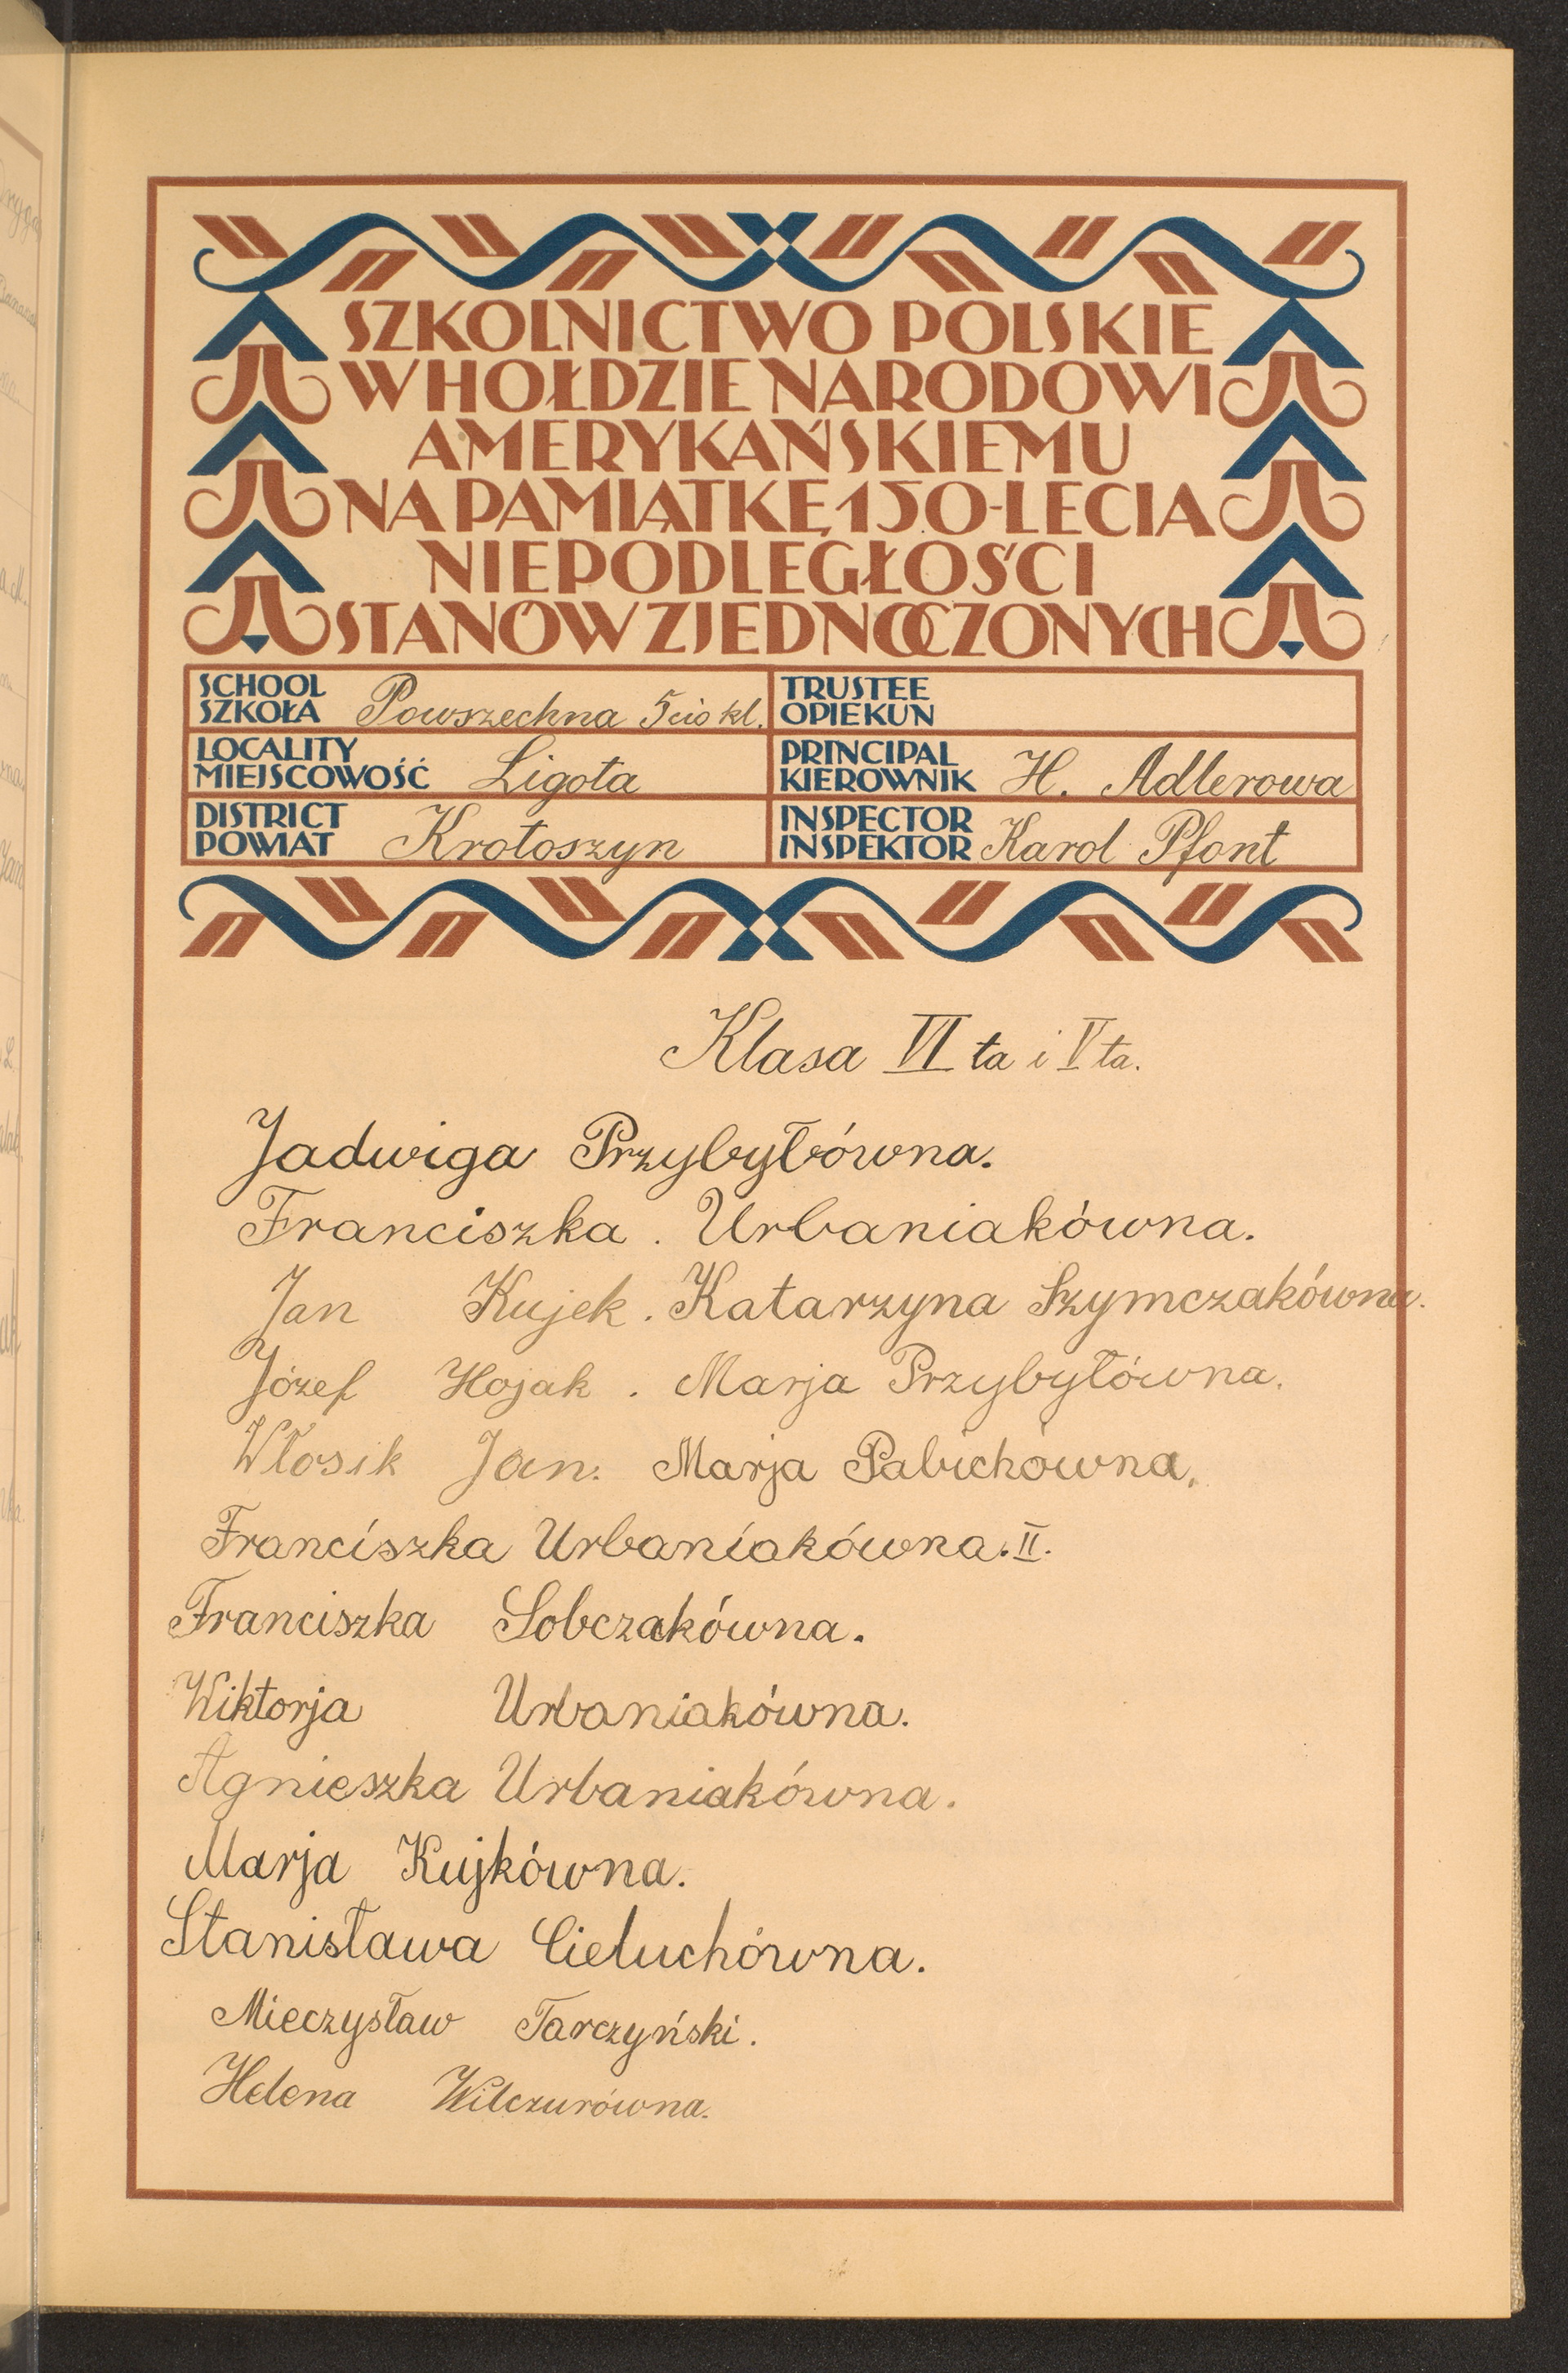 SZKOLNICTWO POLSKIE
W HOŁDZIE NARODOWI
AMERYKAŃSKIEMU
NA PAMIĄTKĘ 150-LECIA
NIEPODLEGŁOŚCI
STANÓW ZJEDNOCZONYCH
SCHOOL
SZKOŁA Powszechna 5cio kl.
TRUSTEE
OPIEKUN
LOCALITY
MIEJSCOWOŚĆ Ligota
PRINCIPAL
KIEROWNIK H. Adlerowa
DISTRICT
POWIAT Krotoszyn
INSPECTOR
INSPEKTOR Karol Pfont
Klasa VI ta i V ta.
Jadwiga Przybyłówna.
Franciszka . Urbaniakówna.
Jan Kujek . Katarzyna Szymczakówna.
Józef Hojak . Marja Przybyłówna.
Włosik Jan. Marja Pabichówna.
Franciszka Urbaniakówna. II.
Franciszka Sobczakówna.
Wiktorja Urbaniakówna.
Agnieszka Urbaniakówna.
Marja Kujkówna.
Stanisława Cieluchówna.
Mieczysław Tarczyński.
Helena Wilczurówna.